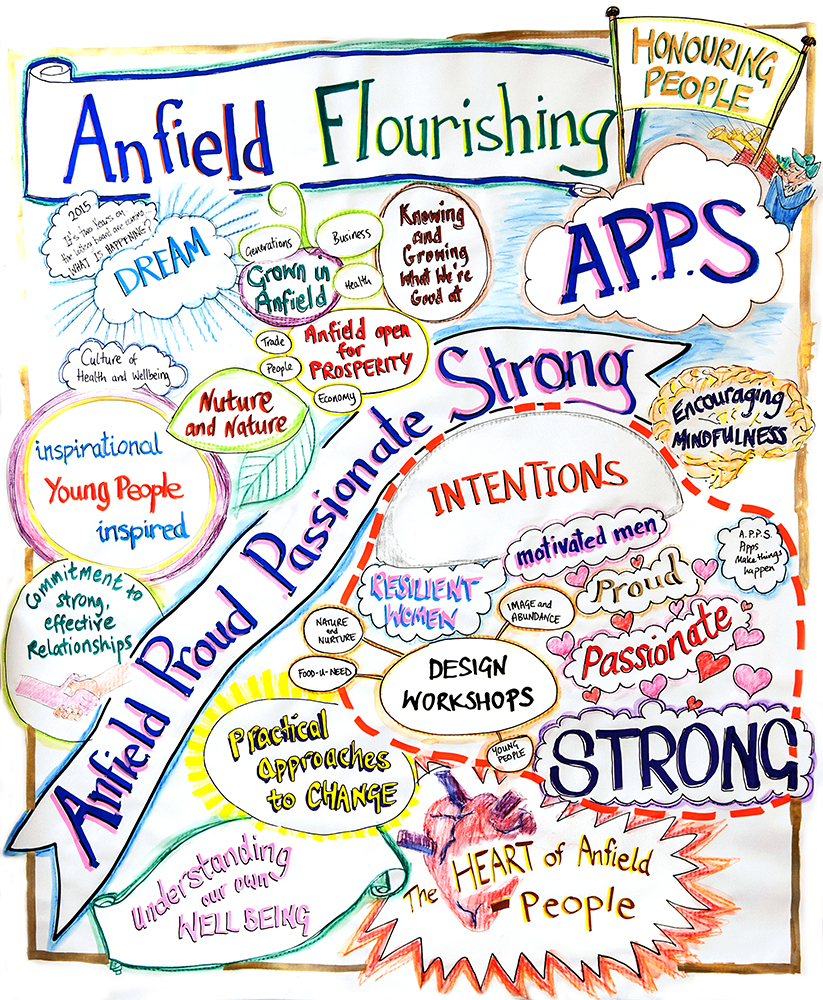 Anfield Flourishing
HONOURING
PEOPLE
A.P.P.S
2015
It's two Years on
WHAT IS HAPPENING?
DREAM
Generations
Business
Health
Grown in
Anfield
Knowing
and
Growing
What We're
Good at
Trade
People
Economy
Anfield open
for
PROSPERITY
Culture of
Health and Wellbeing
Nuture
and Nature
inspirational
Young People
inspired
Commitment to
strong,
effective
Relationships
Anfield Proud Passionate Strong
Encouraging
MINDFULNESS
INTENTIONS
motivated men
RESILIENT
WOMEN
Proud
A.P.P.S.
Apps
Make things
happen
Passionate
STRONG
NATURE
and
NURTURE
IMAGE and
ABUNDANCE
FOOD-U-NEED
DESIGN
WORKSHOPS
YOUNG
PEOPLE
Practical
approaches
to CHANGE
understanding
our own
WELL BEING
The HEART of Anfield
People